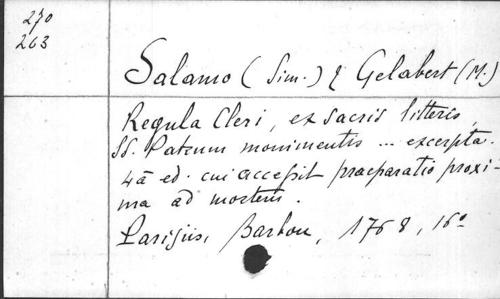 270
263
Salamo (Sim.) & Gelabert (M.)
Regula Cleri, ex sacris litteris,
SS. Patrum monimentis ... excerpta.
4ā ed. cui accessit præparatio proxi-
ma ad mortem.
Parisiis, Barbou, 1768, 16º